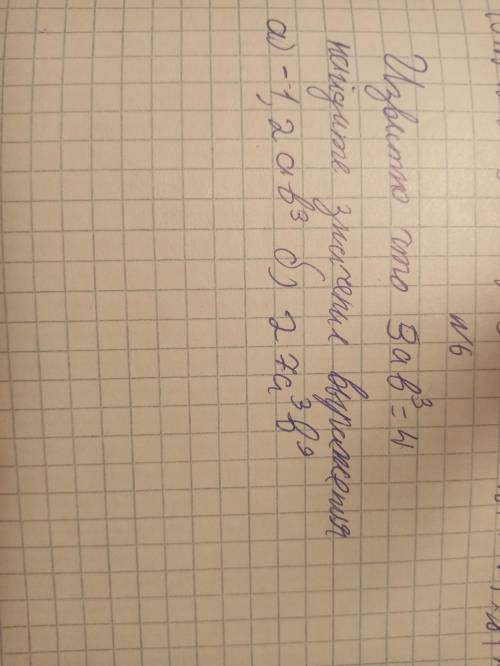 №6
Известно что 3ab³=4
найдите значения выражения
а) -1,2ab³ б) 27a³b⁹